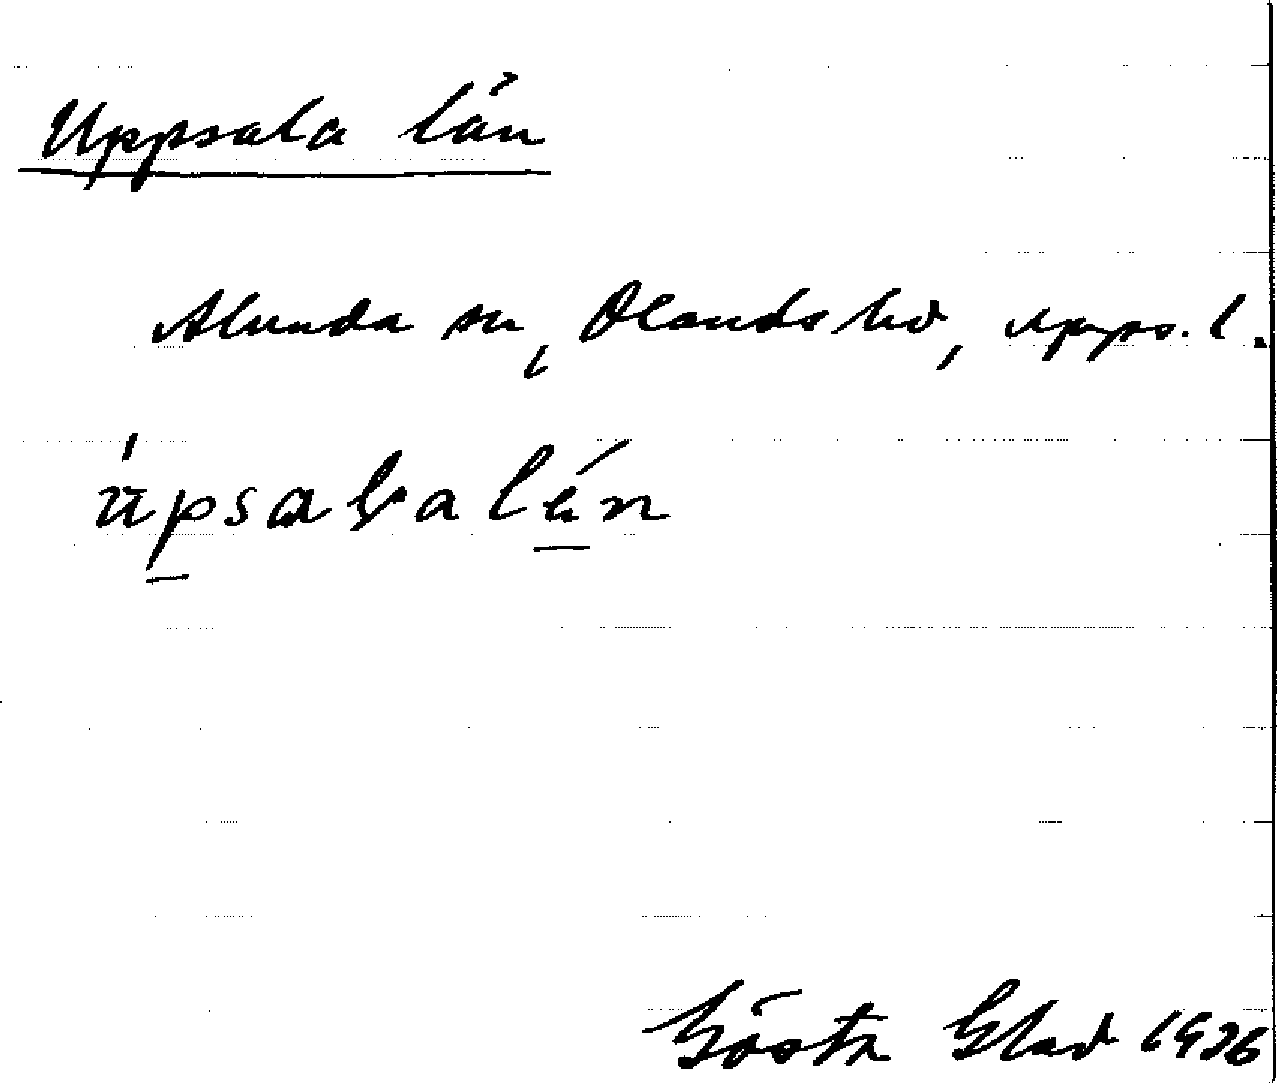 Uppsala län
Alunda sn, Olands hd, Upps. l.
úpsalalén
Gösta Glad 1936